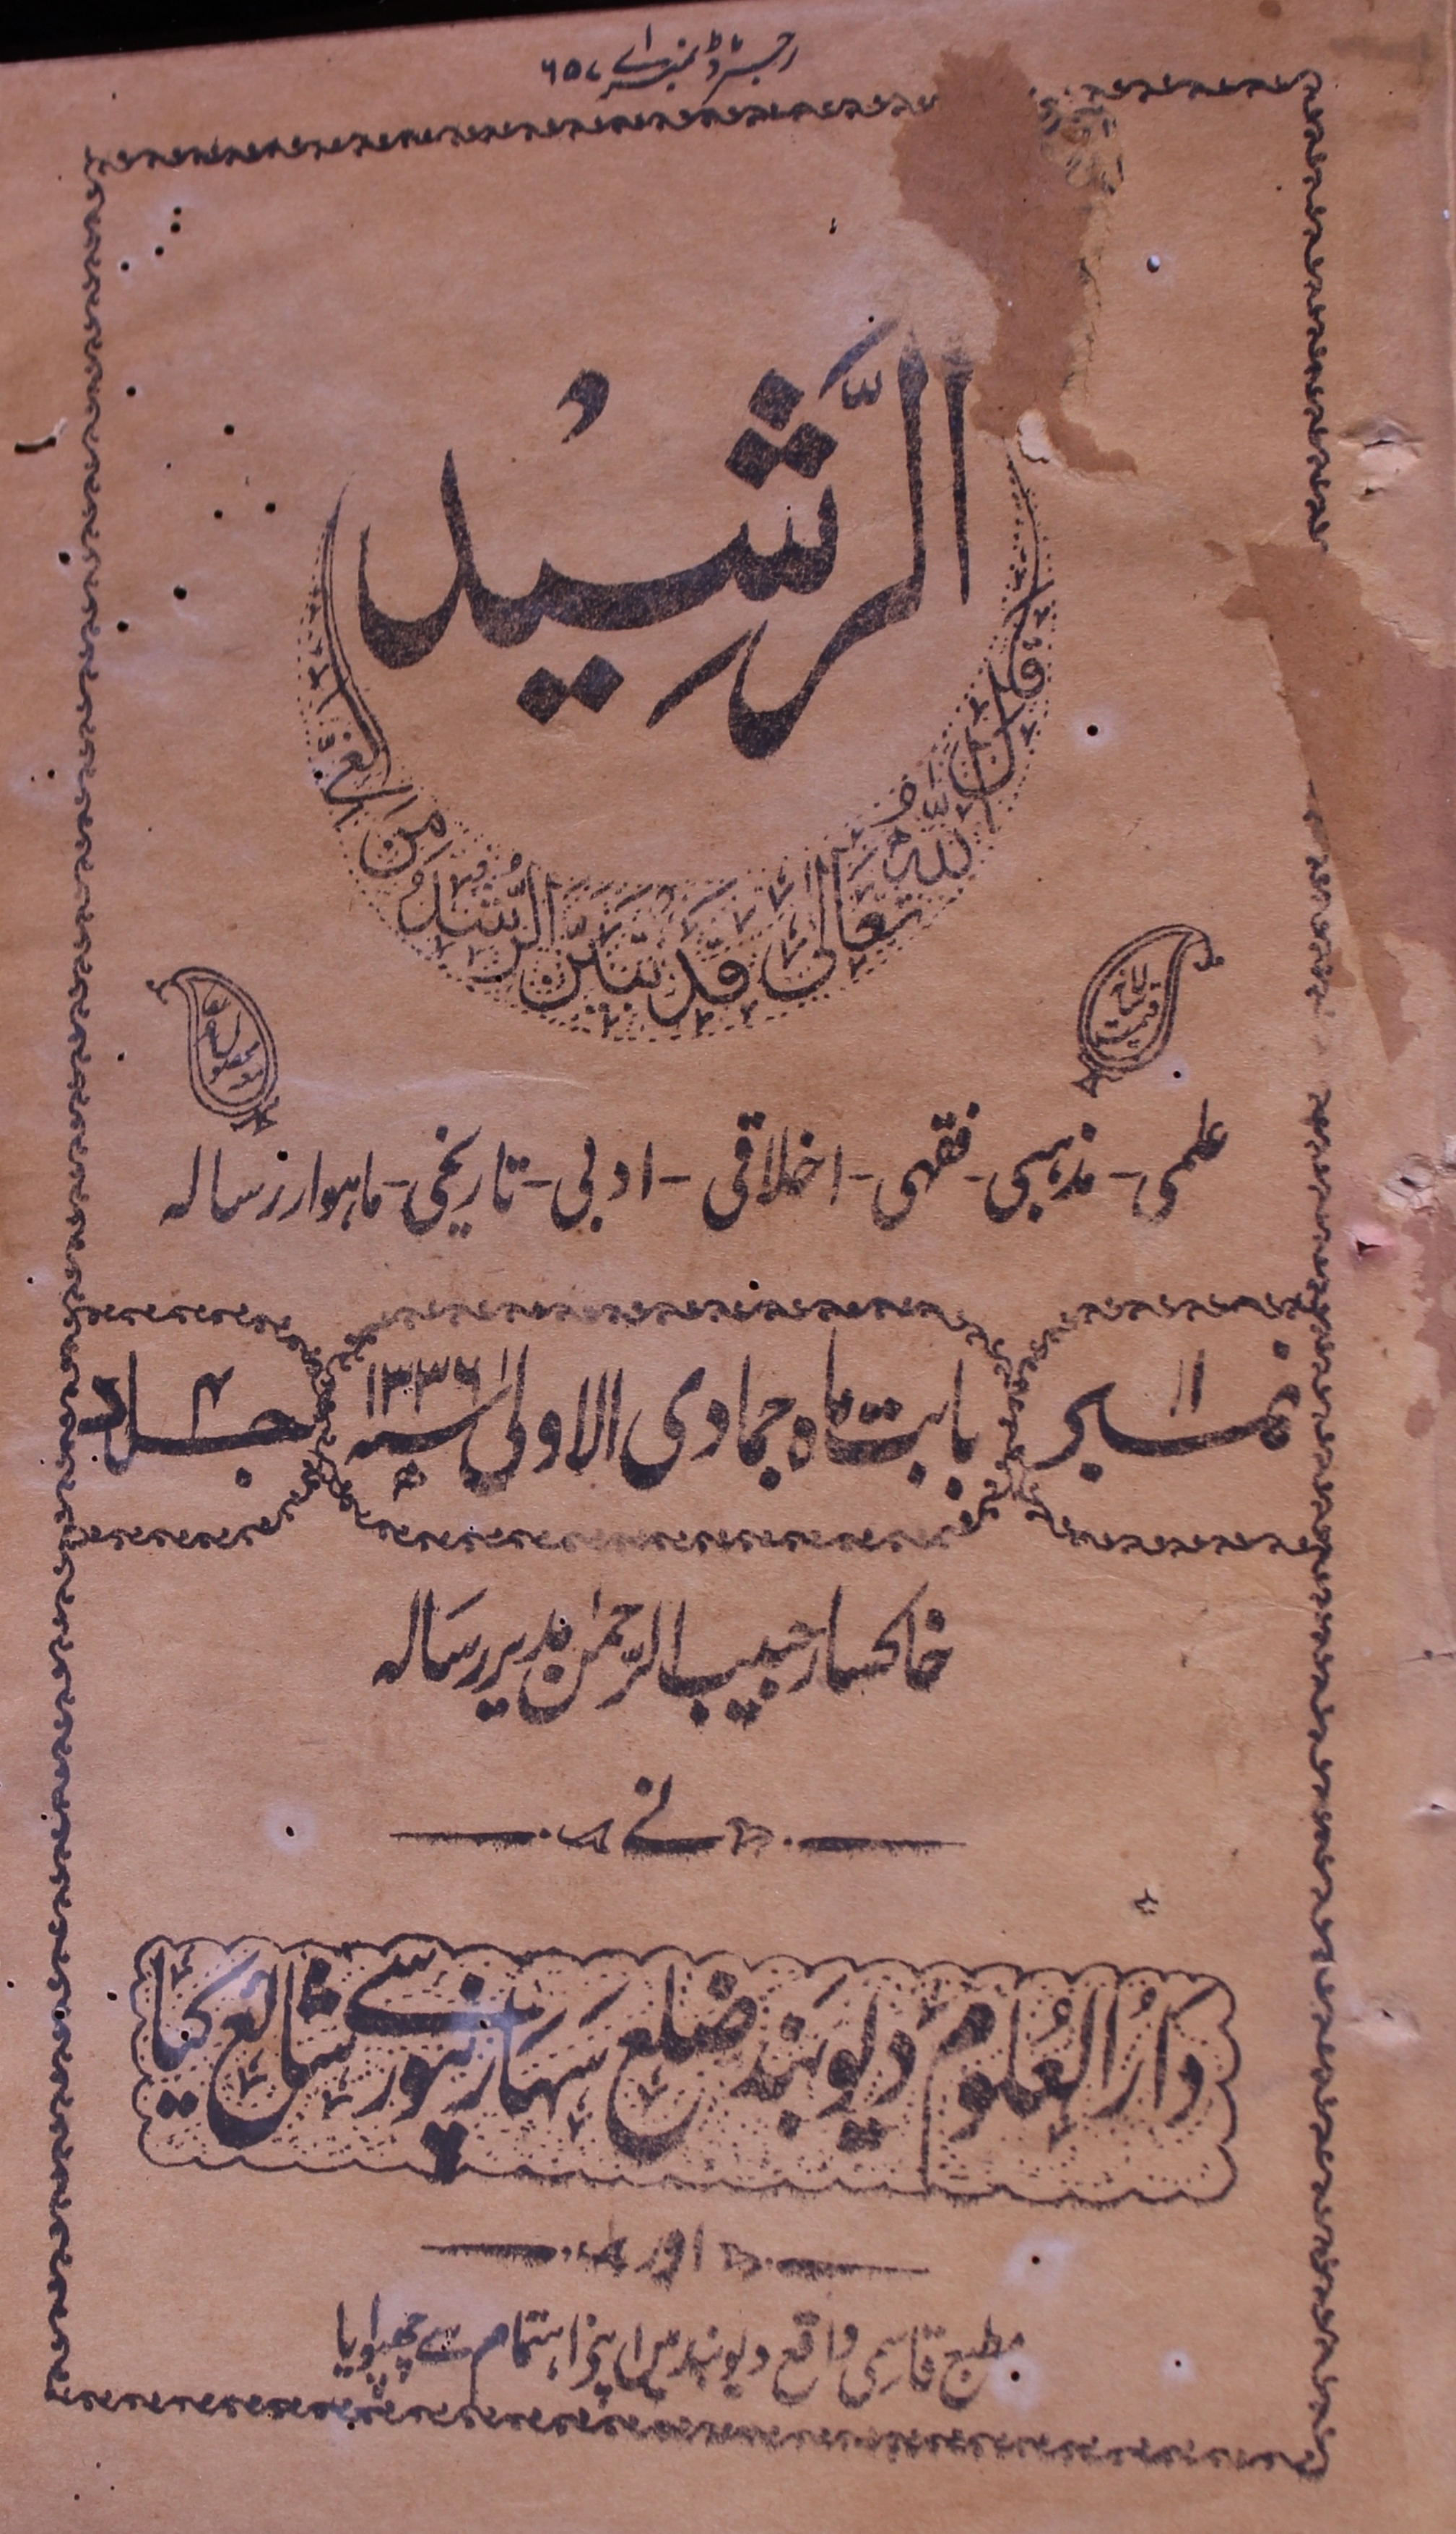 رجسٹرڈ نمبر اے ۶۵۷
الرَّشِیْد
قال اللّٰہُ تعَالیٰ قَدْ تَبَیَّنَ الرُّشْدُ مِنَ الْغَیِّ
علمی - مذہبی - فقہی - اخلاقی - ادبی - تاریخی - ماہوار رسالہ
نمبر ۱۱ بابت ماہ جمادی الاولیٰ سنہ ۱۳۳۶ھ جلد ۴
خاکسار حبیب الرحمٰن مدیر رسالہ
نے
دَارُ العُلوم دیوبند ضلع سَہارنپور سے شائع کیا
اور
مطبع قاسمی واقع دیوبند میں اپنے اہتمام سے چھپوایا